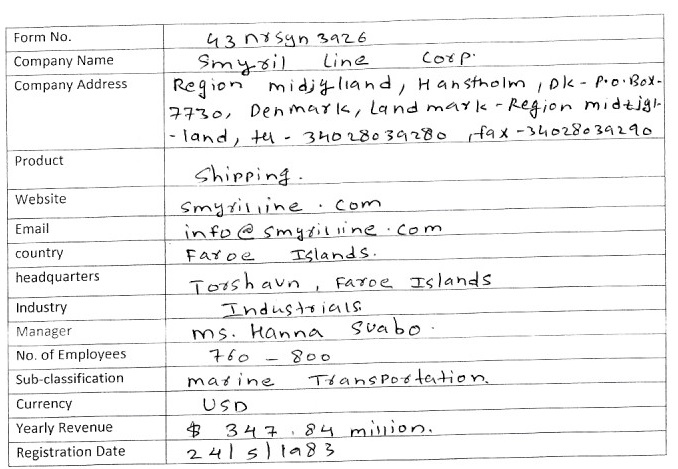 Form No. 43nrsyn3926
Company Name Smyril Line Corp.
Company Address Region midjylland, Hanstholm, DK - P.O.Box-
7730, Denmark, Landmark - Region midtjyl-
-land, tel - 34028039280, fax - 34028039290
Product Shipping.
Website smyrilline.com
Email info@smyrilline.com
country Faroe Islands.
headquarters Torshavn, Faroe Islands
Industry Industrials
Manager ms. Hanna Svabo.
No. of Employees 760 - 800
Sub-classification marine Transportation.
Currency USD
Yearly Revenue $ 347.84 million.
Registration Date 24/5/1983